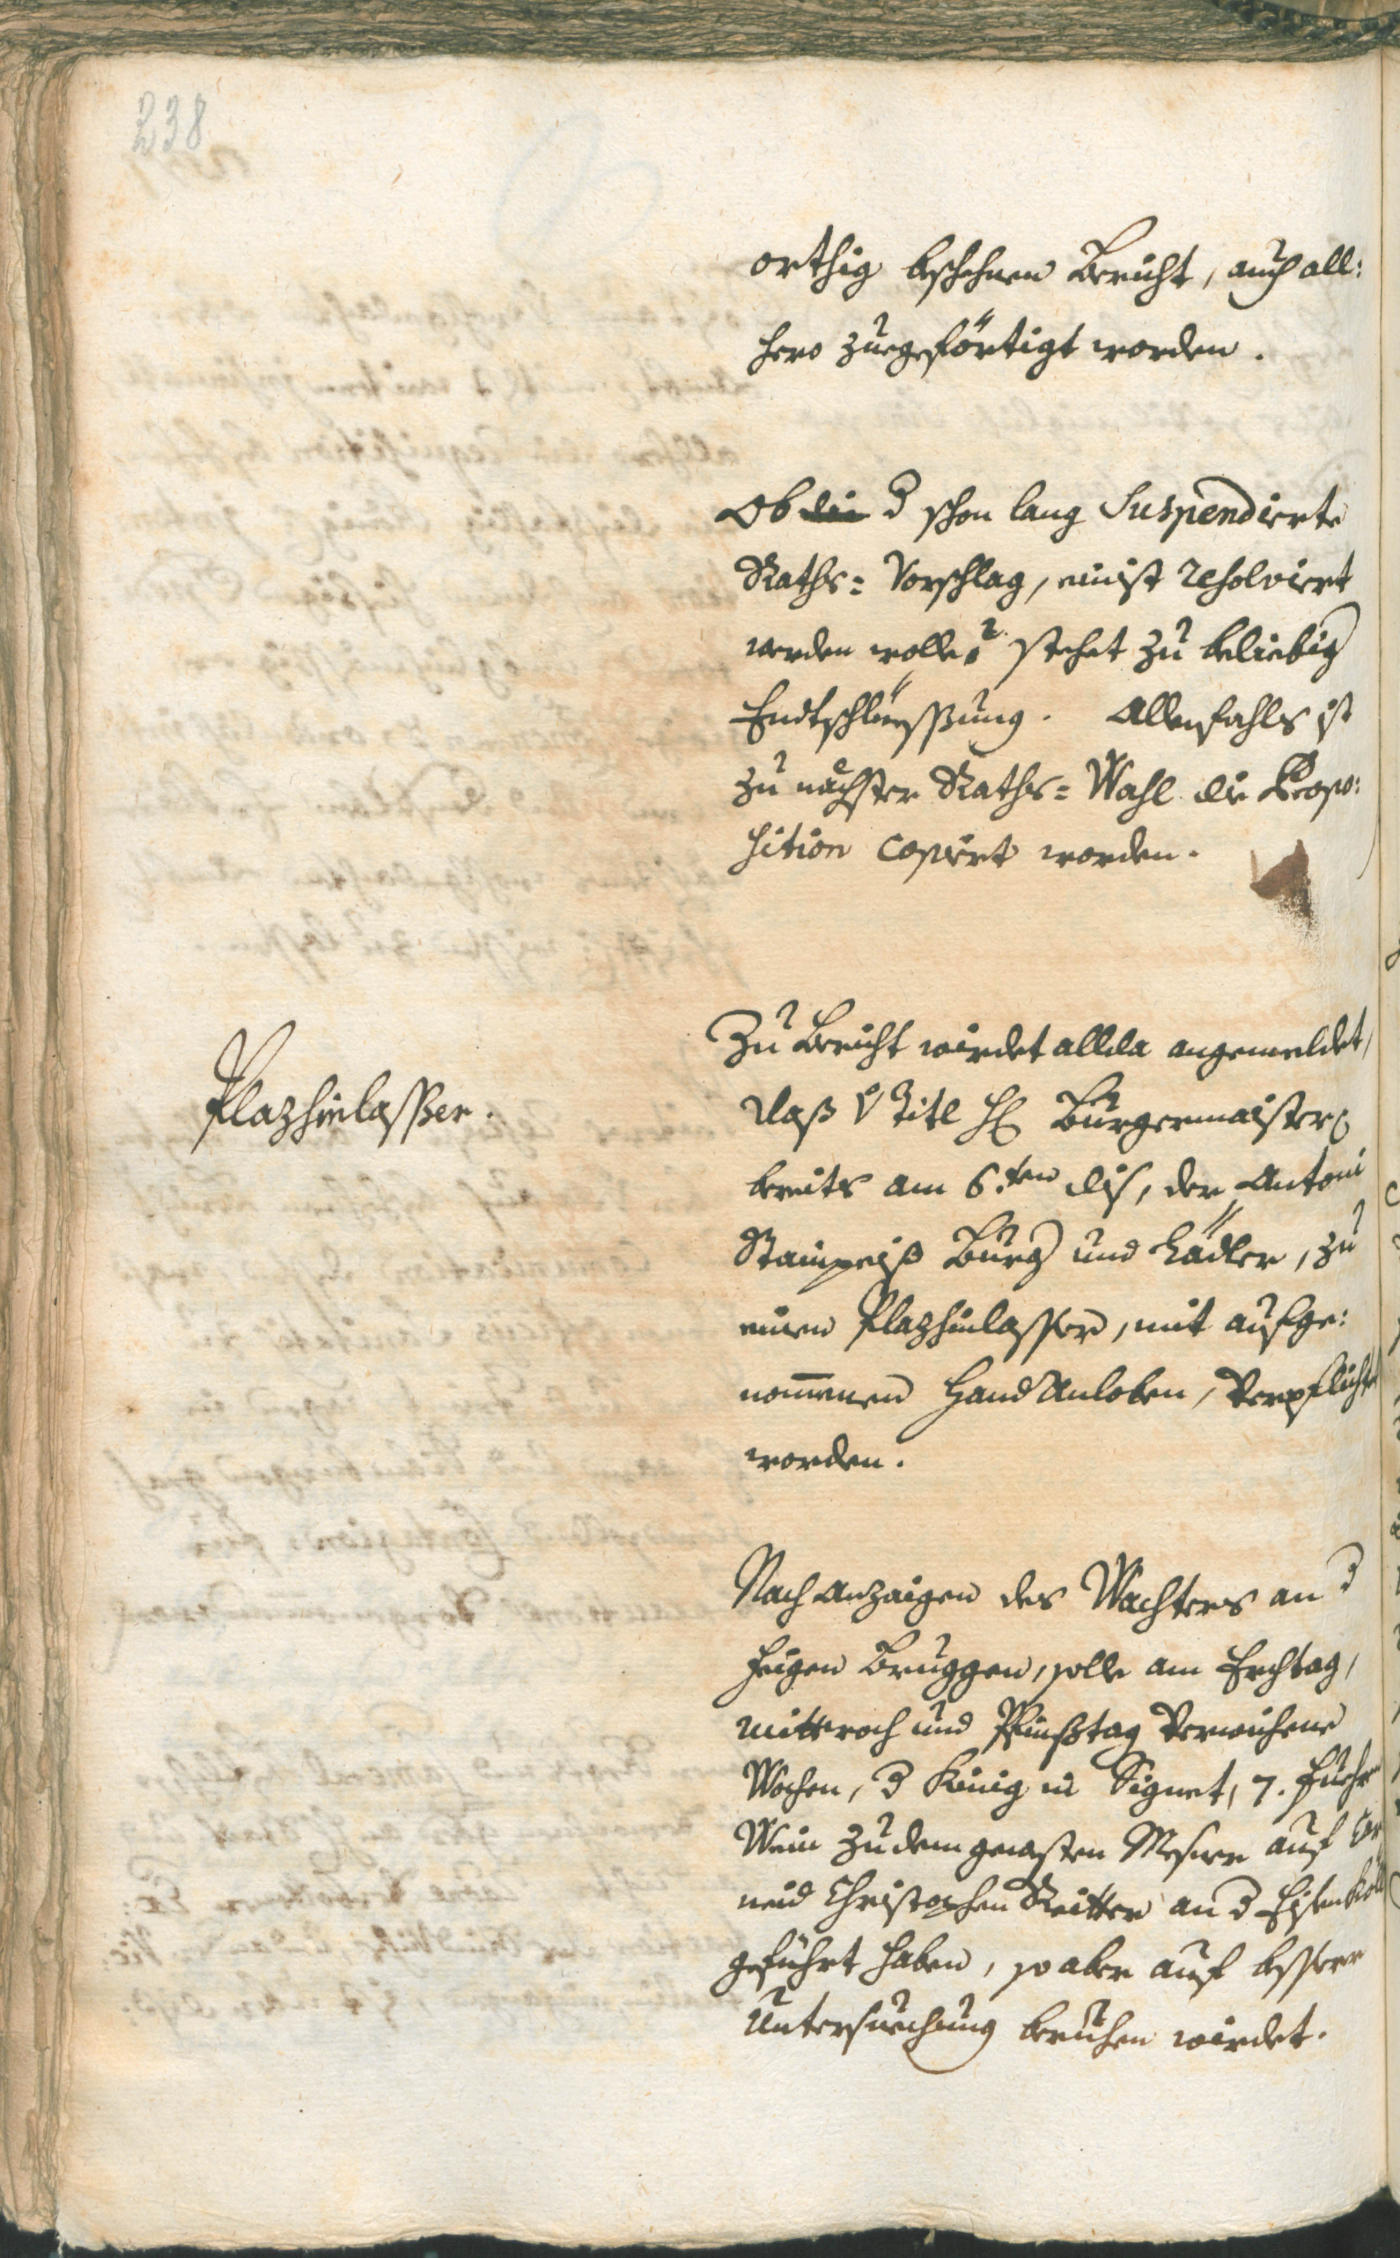 238
orthig beschehnen Bericht, auch all:
hero zuegeförtigt worden.
Ob die d schon lang Suspendierte
Raths= Vorschlag, einist resolviert
werden wolle? stehet zu beliebig
Endtschlüessung. Allenfahls ist
zu nächster Raths= Wahl die Propo:
sition copiert worden.
Zu Bericht wirdet allda angemeldet,
Plazhinlasser.
daß Titl H Burgermaister
bereits am 6.ten dis, der Antoni
Stampeiß Burg und Lädler, zu
einen Plazhinlasser, mit aufge:
nommenen Hand Anloben, Verpflicht
worden.
Nach Anzaigen des Wachters an d
heigen Bruggen, solle am Erchtag,
mittwoch und Pfinztag Verwichene
Wochen, d König in Signet, 7. Fuehr
Wein zu dem gewesten Mesner auf Car
neid Christophen Reitter an d Eisenköll
geführt haben, so aber auf besserer
Untersuechung beruhen wirdet.